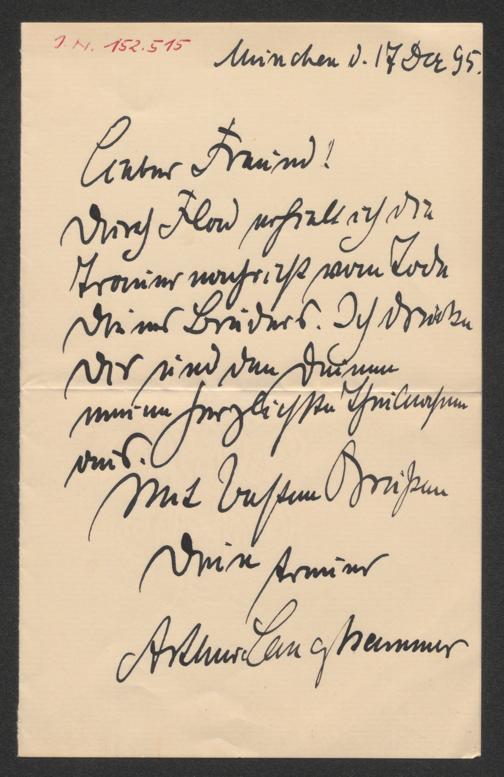 I.N. 152.515
München d. 17 Dez 95.
Lieber Freund!
Durch Flad erhielt ich die
Trauernachricht vom Tode
Deines Bruders. Ich drücke
Dir und den Deinen
meine herzlichste Theilnahme
aus.
Mit besten Grüßen
Dein treuer
Arthur Langhammer